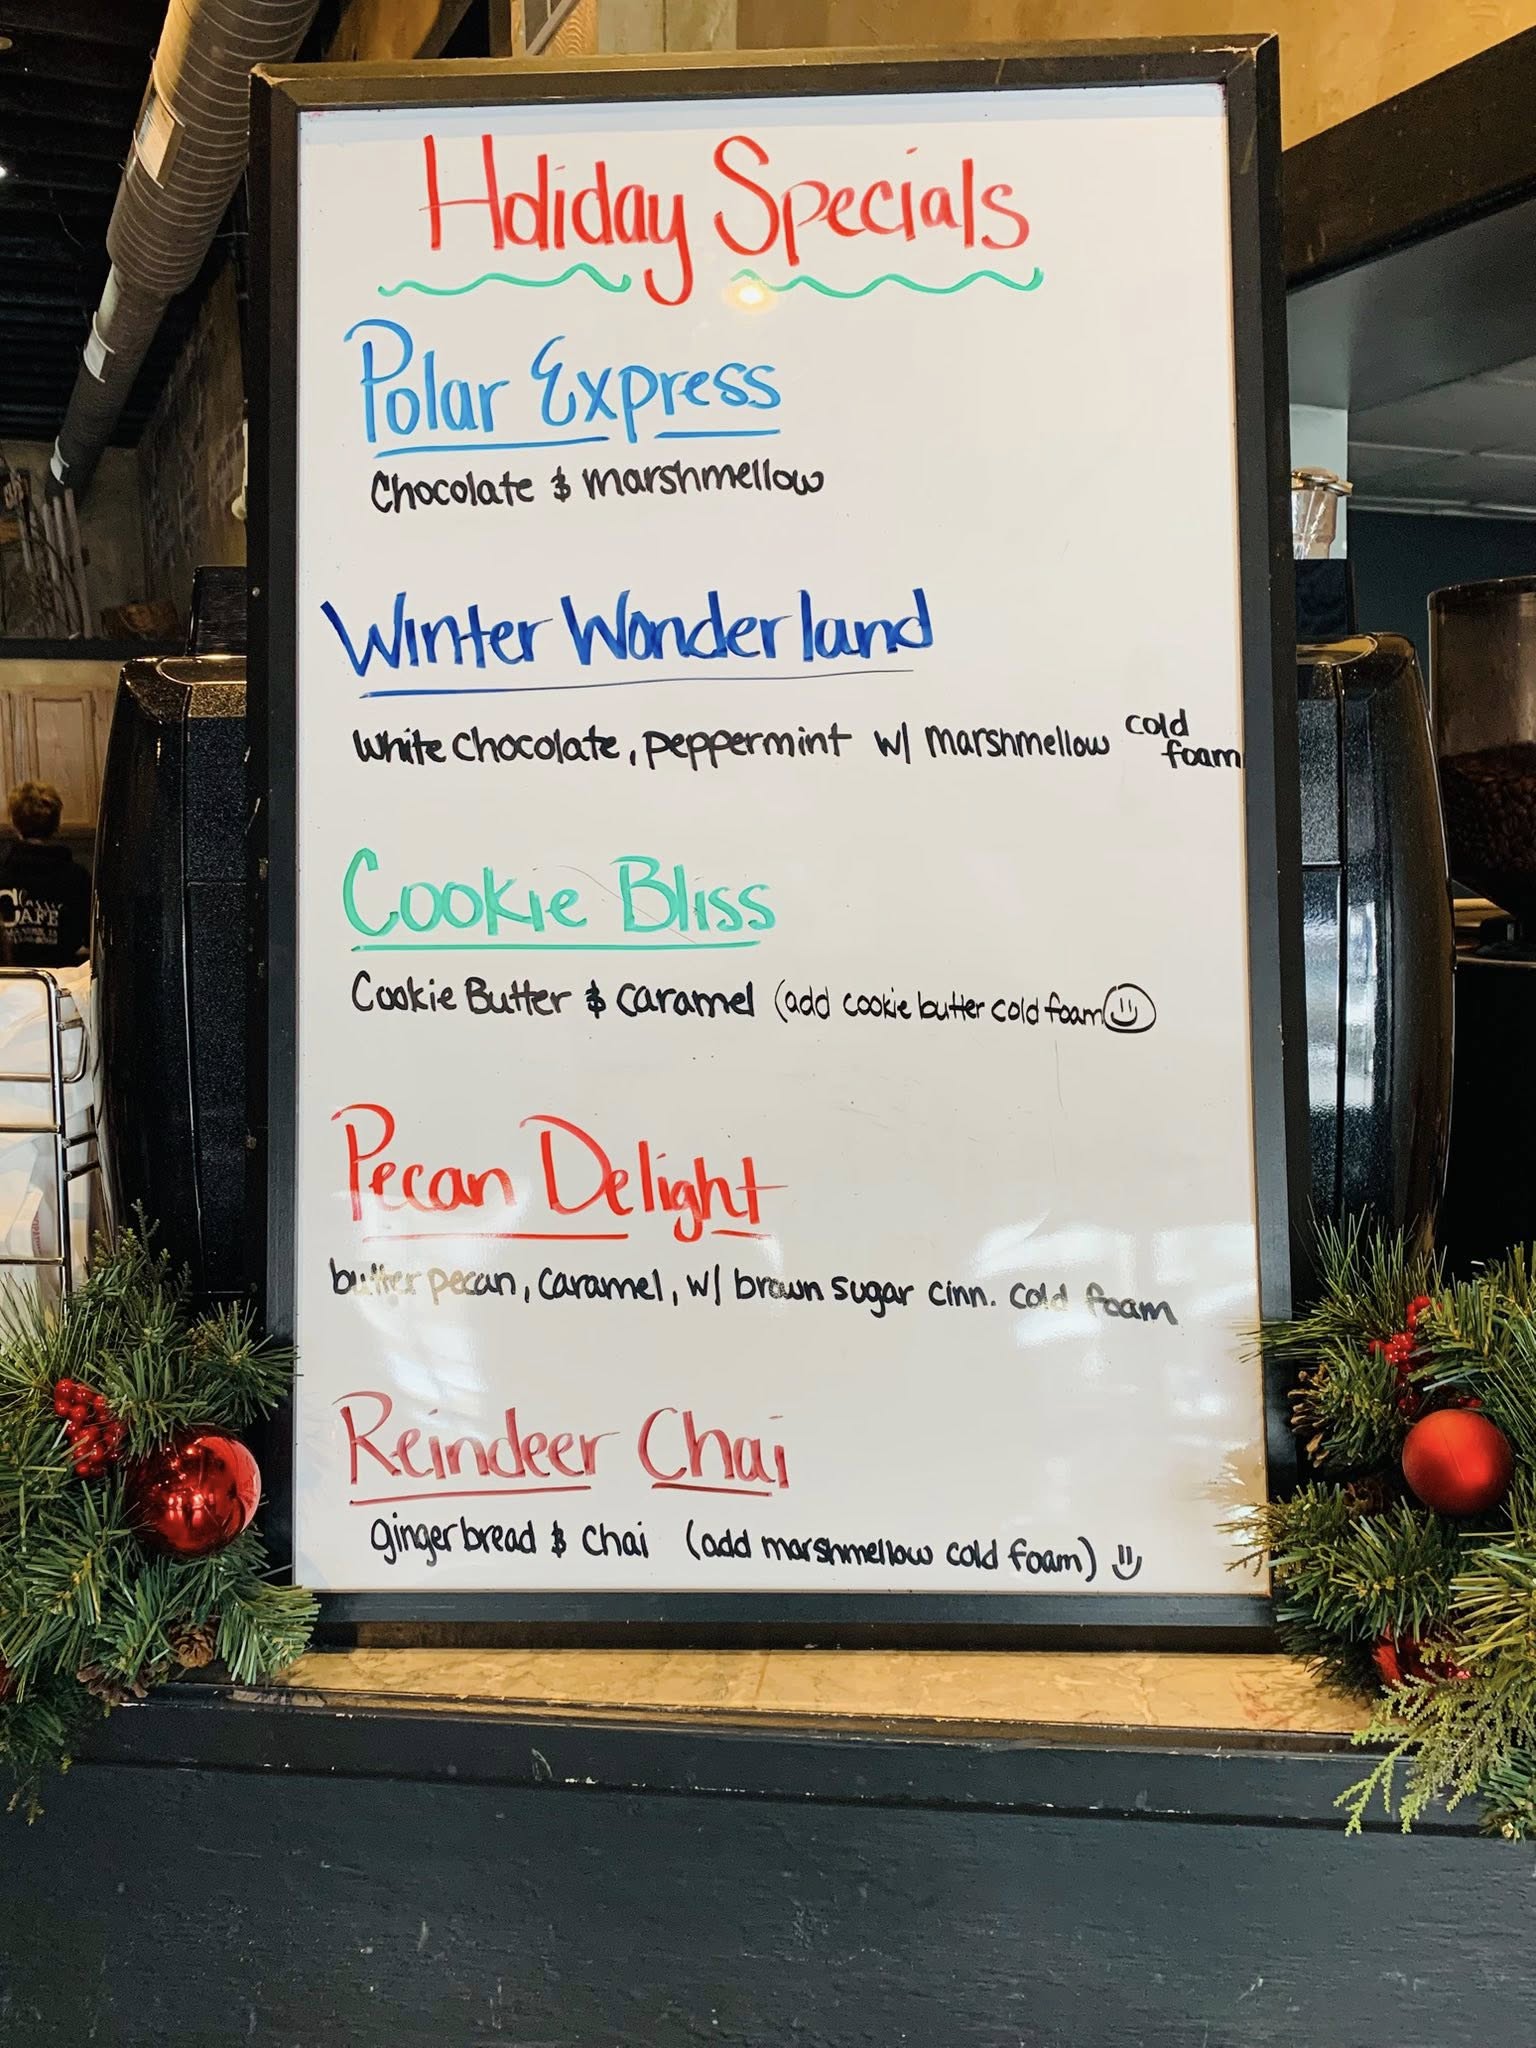 Holiday Specials
Polar Express
Chocolate & marshmellow
Winter Wonderland
White chocolate, peppermint w/ marshmellow cold foam
Cookie Bliss
Cookie Butter & caramel (add cookie butter cold foam
Pecan Delight
butter pecan, caramel, w/ brown sugar cinn. cold foam
Reindeer Chai
gingerbread & chai (add marshmellow cold foam)
Classic
CAFE